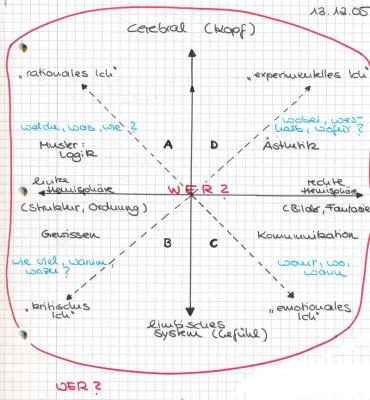 13.12.05
Cerebral (Kopf)
"rationales Ich"
"experimentelles Ich"
welche, was, wie?
wobei, wes-
halb, wofür?
A
D
Muster:
Logik
Ästhetik
linke
Hemisphäre
WER?
rechte
Hemisphäre
(Struktur, Ordnung)
(Bilder, Fantasie)
Gewissen
B
C
Kommunikation
wie viel, warum,
wozu?
wer, wo,
wann
"kritisches
Ich"
"emotionales
Ich"
limbisches
System (Gefühl)
WER?